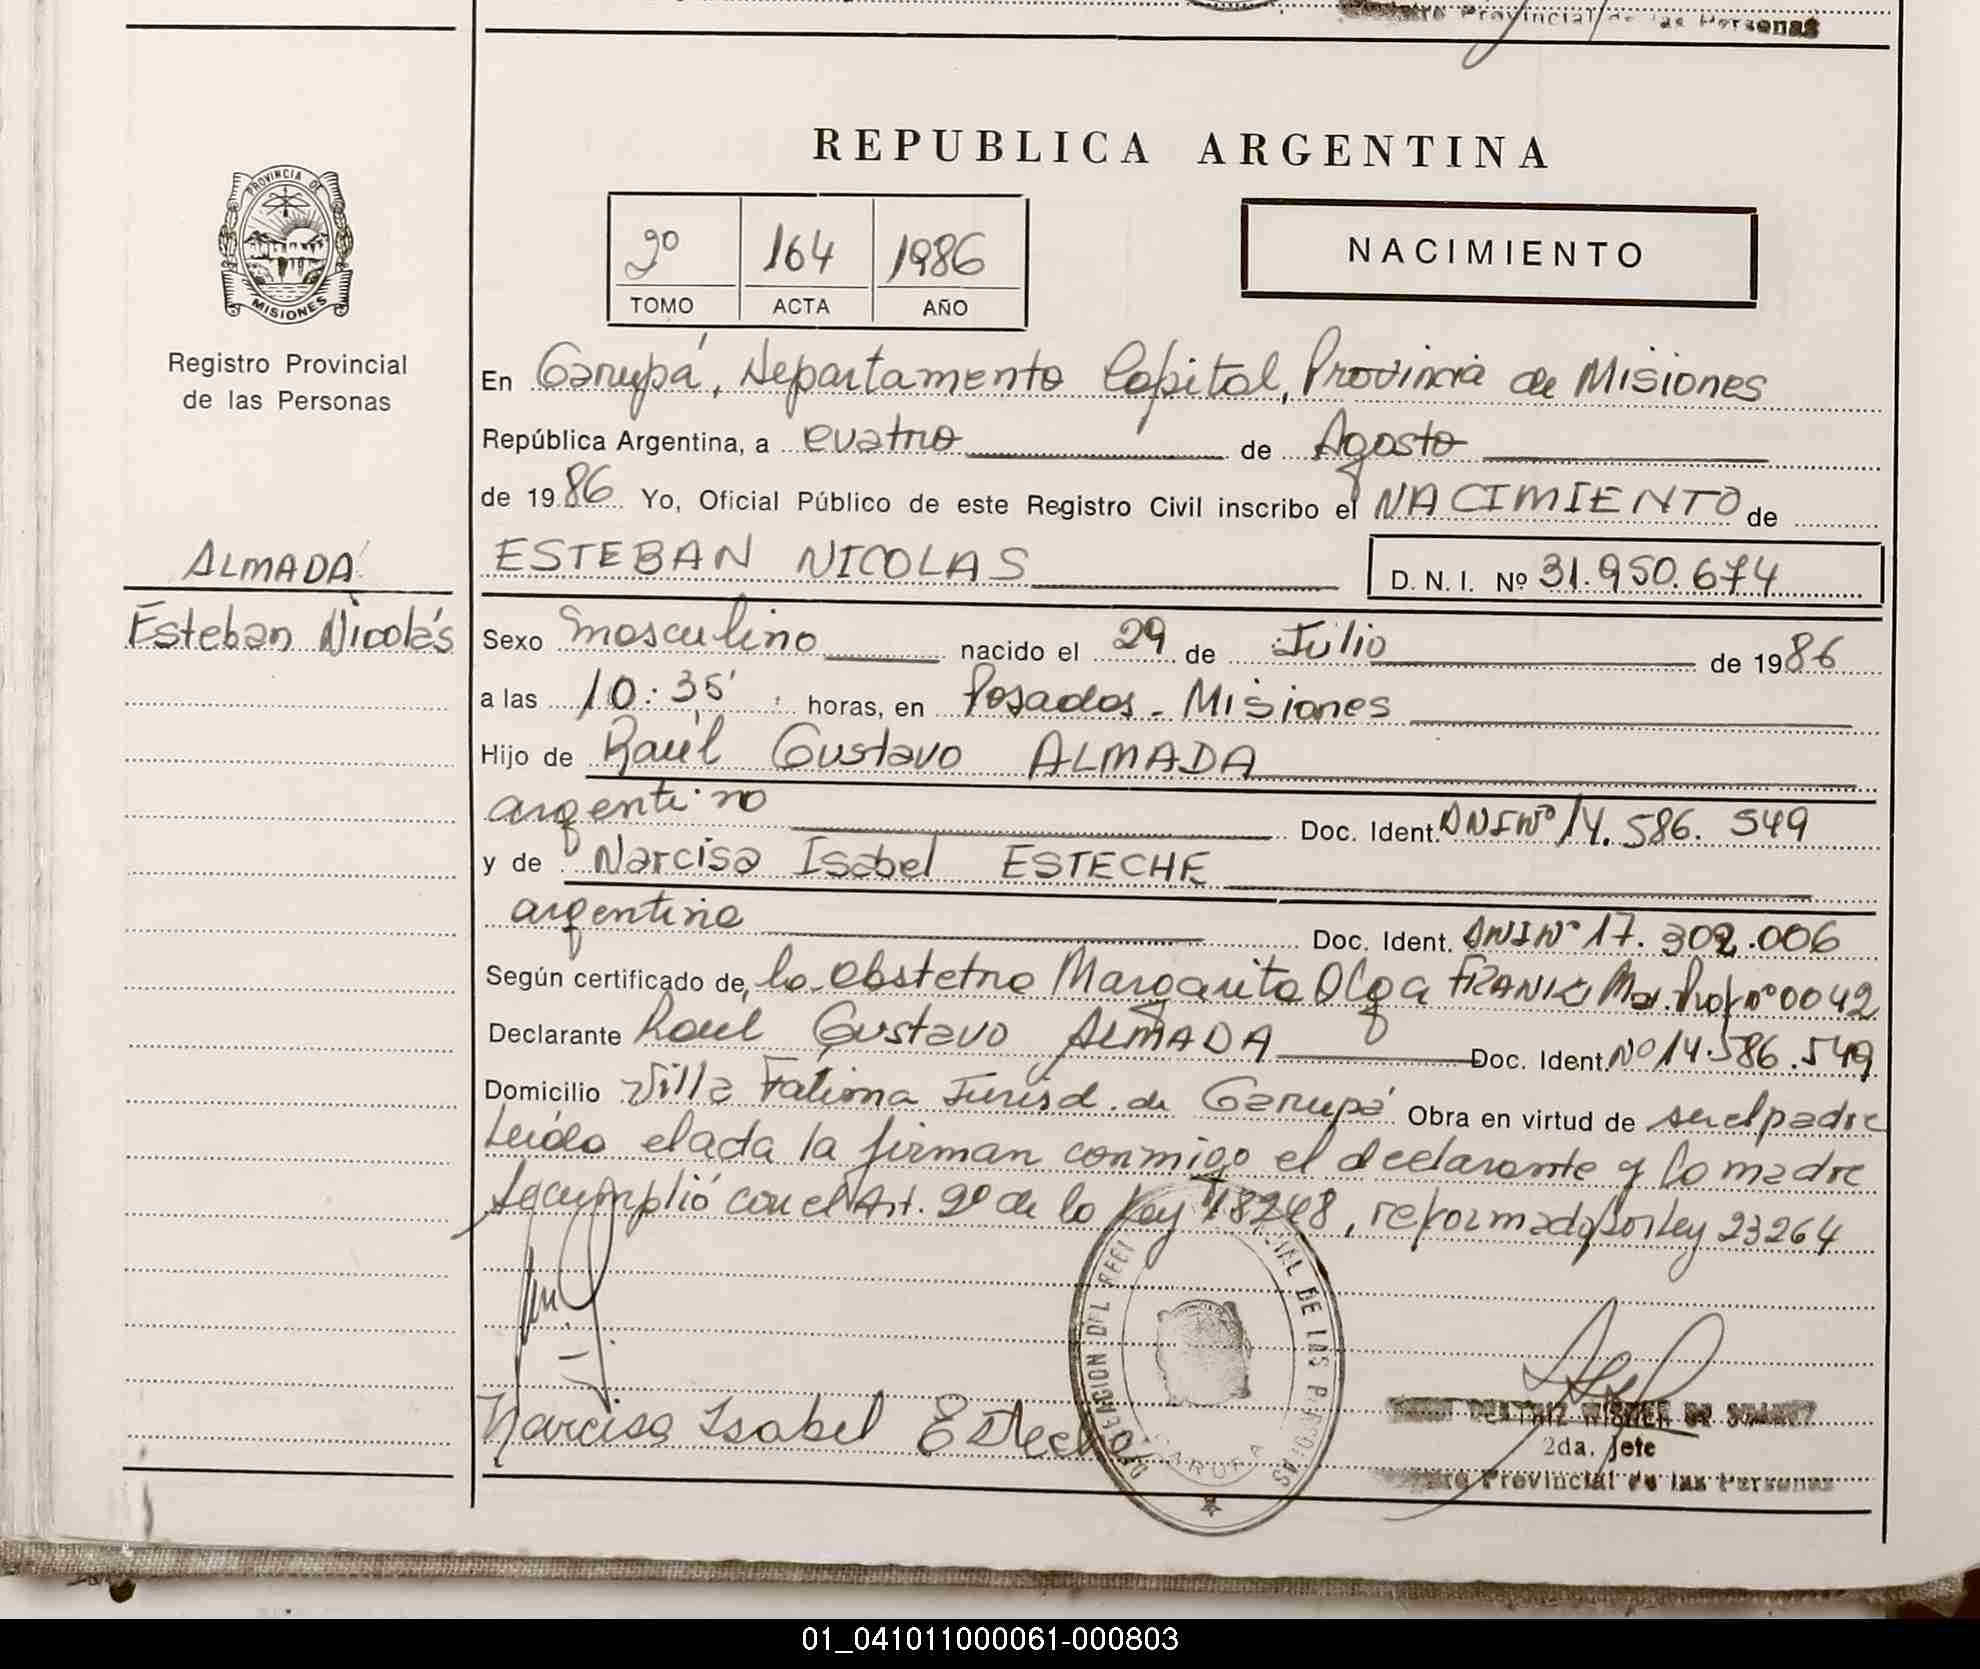 Provincial de las Personas
REPUBLICA ARGENTINA
PROVINCIA DE
MISIONES
Registro Provincial
de las Personas
2º 164 1986
TOMO ACTA AÑO
NACIMIENTO
En Garupá, Departamento Capital, Provincia de Misiones
República Argentina, a cuatro de Agosto
de 1986 Yo, Oficial Público de este Registro Civil inscribo el NACIMIENTO de
ALMADA
Esteban Nicolás
ESTEBAN NICOLAS D.N.I. Nº 31.950.674
Sexo masculino nacido el 29 de Julio de 1986
a las 10:35' horas, en Posadas - Misiones
Hijo de Raúl Gustavo ALMADA
argentino Doc. Ident. DNI Nº 14.586.549
y de Narcisa Isabel ESTECHE
argentina Doc. Ident. DNI Nº 17.302.006
Según certificado de la Obstetra Margarita Olga Mat. Prof nº 0042
Declarante Raúl Gustavo ALMADA Doc. Ident. Nº 14.586.549
Domicilio Villa Fatima Jurisd. de Garupá Obra en virtud de ser el padre
Leída el acta la firman conmigo el declarante y la madre
Se cumplió con el Art. 2º de la Ley 18248, reformado por Ley 23264
Narcisa Isabel Esteche
DE LAS PERSONAS
GARUPA
BEATRIZ
2da. Jefe
Provincial de las Personas
01_041011000061-000803